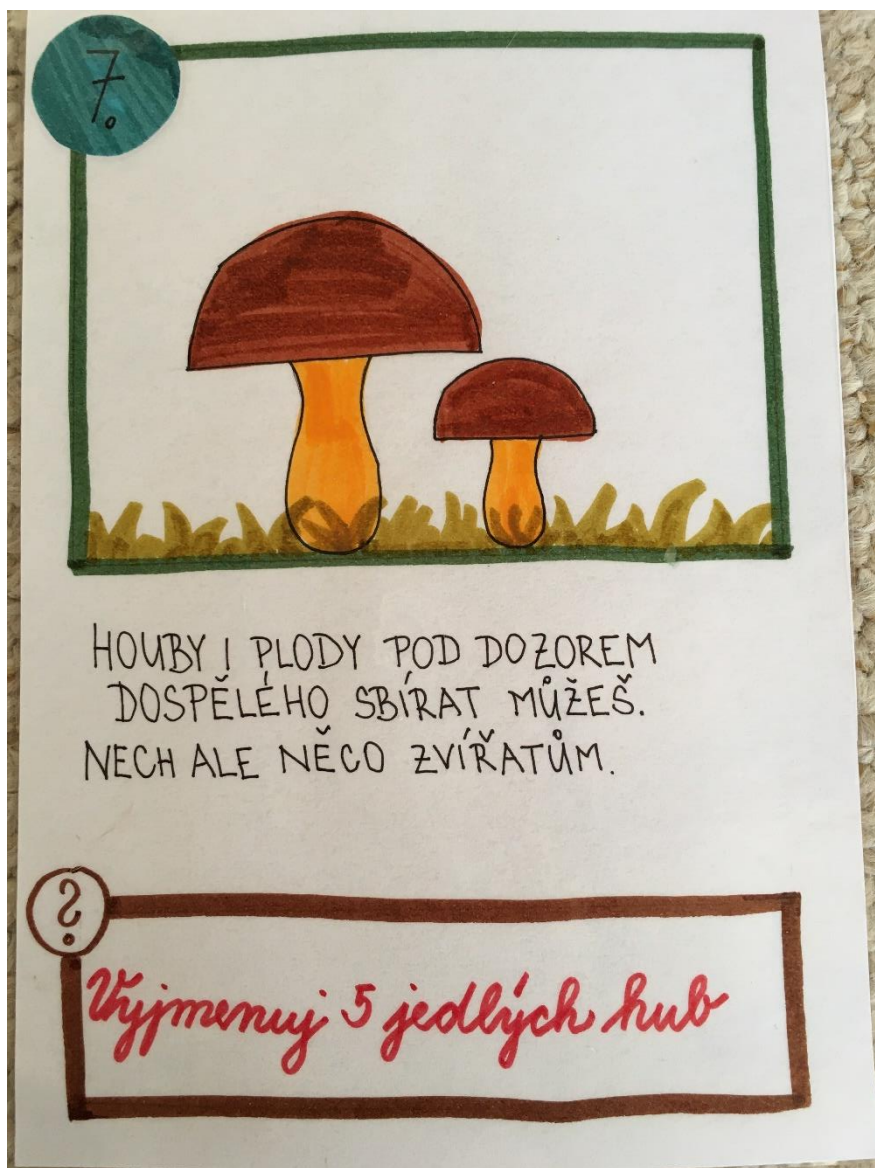 7.
HOUBY I PLODY POD DOZOREM
DOSPĚLÉHO SBÍRAT MŮŽEŠ.
NECH ALE NĚCO ZVÍŘATŮM.
?
Vyjmenuj 5 jedlých hub